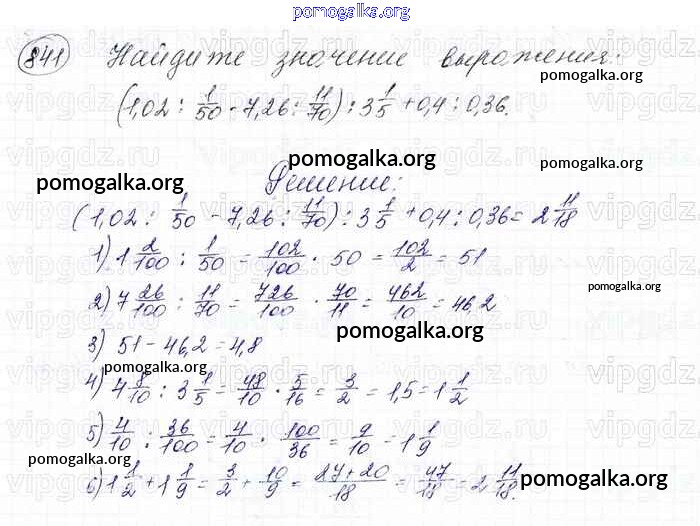 pomogalka.org
841 Найдите значение выражения:
pomogalka.org
(1,02 : 1/50 - 7,26 : 11/70) : 3 1/5 + 0,4 : 0,36.
pomogalka.org
pomogalka.org
pomogalka.org
Решение:
(1,02 : 1/50 - 7,26 : 11/70) : 3 1/5 + 0,4 : 0,36 = 2 11/18
1) 1 2/100 : 1/50 = 102/100 · 50 = 102/2 = 51
2) 7 26/100 : 11/70 = 726/100 · 70/11 = 462/10 = 46,2
pomogalka.org
3) 51 - 46,2 = 4,8
pomogalka.org
pomogalka.org
4) 4 8/10 : 3 1/5 = 48/10 · 5/16 = 3/2 = 1,5 = 1 1/2
pomogalka.org
5) 4/10 : 36/100 = 4/10 · 100/36 = 9/10 = 1 1/9
pomogalka.org
6) 1 1/2 + 1 1/9 = 3/2 + 10/9 = 27+20/18 = 47/18 = 2 11/18.
pomogalka.org
pomogalka.org